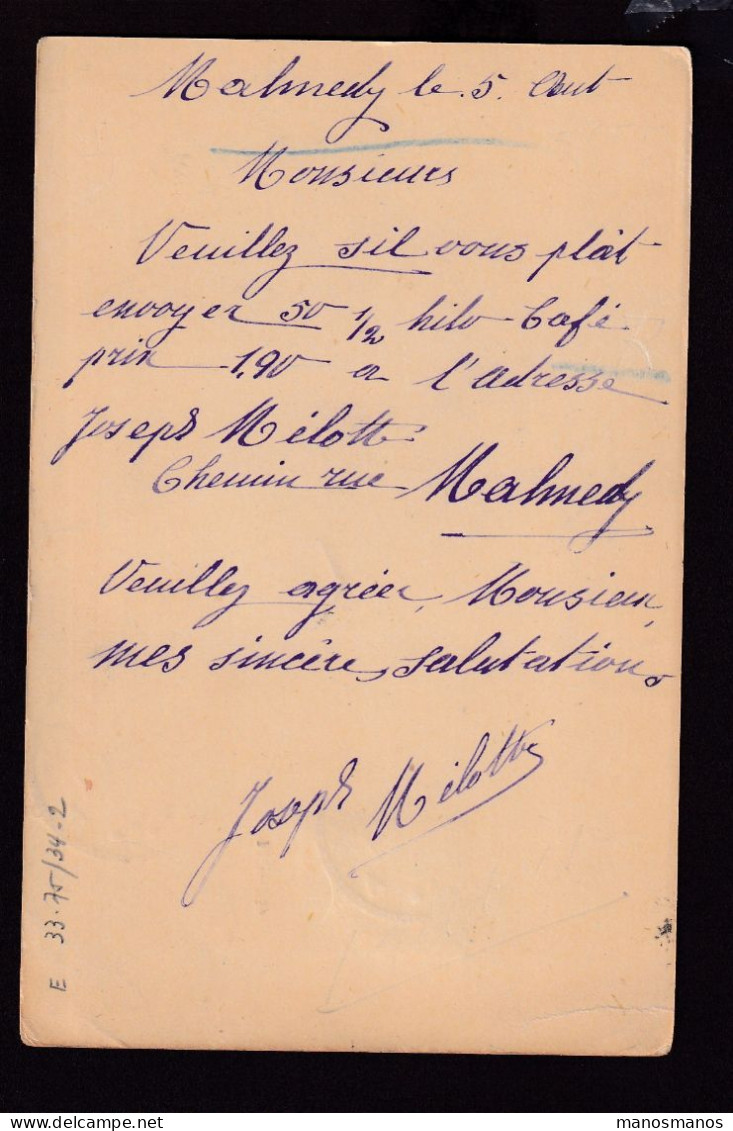 Malmedy le 5. Aout
Monsieurs
Veuillez sil vous plait
envoyer 50 1/2 kilo Café
prix 1,90 a l'adresse
Joseph Mélotte
Chemin rue Malmedy
Veuillez agréer, Monsieur,
mes sincère, salutation,
Joseph Mélotte
E 33.75/34-2
manosmanos